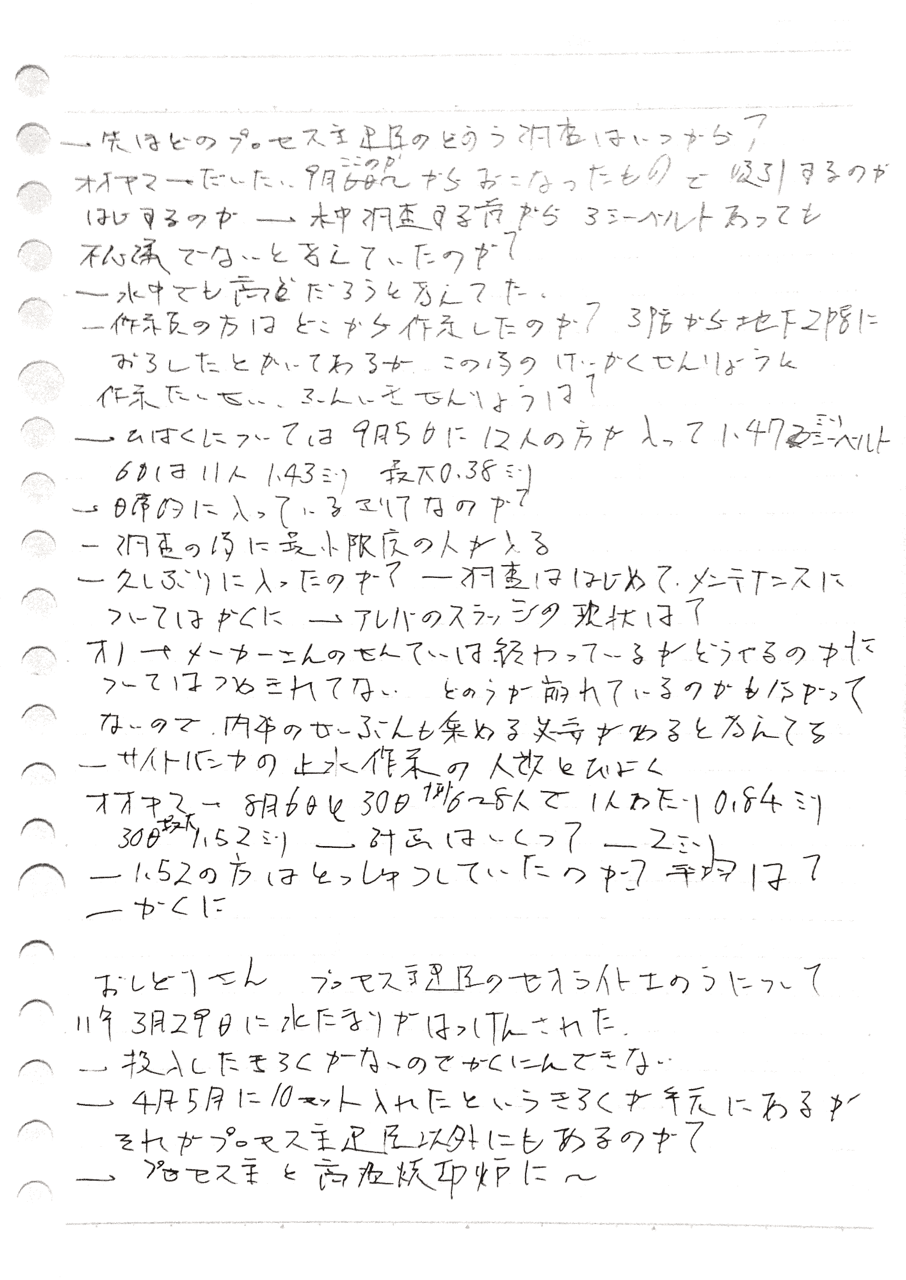 → 先ほどのプロセス主建屋のどのう調査はいつから?
オオヤマ→だいたい9月ここのかからおこなったもので吸引するのか
はじするのか → 水中調査する前から 3シーベルトあっても
不思議でないと考えていたのか?
— 水中でも高いだろうと考えてた、
— 作業員の方はどこから作業したのか? 3階から地下2階に
おろしたとかいてあるが この後の けいかくせんりょうと
作業たいせい、ふんいきせんりょうは?
→ ひばくについては 9月5日に 12人の方が入って 1.47ミリシーベルト
6日は11人 1.43ミリ 最大0.38ミリ
→ 日常的に入っているエリアなのか?
— 調査の後に最小限度の人が入る
— 久しぶりに入ったのか? — 調査ははじめて、メンテナンスに
ついてはかくに → アレバのスラッジの現状は?
オノ→ メーカーさんのせんていは終わっているがどうやるのかに
ついてはつめきれてない どのうが崩れているのかも分かって
ないので、内部のせいぶんも集める必要があると考えてる
— サイトバンカの止水作業の人数とひばく
オオヤマ→ 8月6日と30日 6〜28人で 1人あたり 0.84ミリ
30日最大1.52ミリ → 計画はいくつ? — 2ミリ
— 1.52の方はとっしゅつしていたのか? 平均は?
— かくに
おしどりさん プロセス主建屋のゼオライト土のうについて
11年 3月29日に水たまりがはっけんされた、
→ 投入したきろくがないのでかくにんできない
→ 4月5月に10セット入れたというきろくが手元にあるが
それがプロセス主建屋以外にもあるのか?
→ プロセス主と高温焼却炉に〜